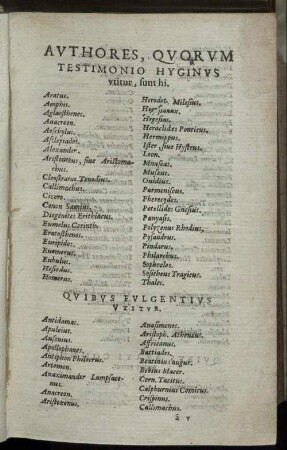 AVTHORES, QVORVM
TESTIMONIO HYGINVS
vtitur, sunt hi.
Aratus.
Amphis.
Aglaosthenes.
Anacreon.
Aeschylus.
Asclepiades.
Alexander.
Aristomus, siue Aristoma-
chus.
Cleostratus Tenedius.
Callimachus.
Cicero.
Canon Samius.
Diognetes Erithræus.
Eumolus Corinth.
Eratosthenes.
Euripides.
Euemerus.
Eubulus.
Hesiodus.
Homerus.
Herodot. Milesius.
Hegesianax.
Hegesius.
Heraclides Ponticus.
Hermippus.
Ister, siue Hystrus.
Leon.
Mnaseas.
Museus.
Ouidius.
Parmeniscus.
Pherecydes.
Petellides Gnosius.
Panyasis.
Polyzenus Rhodius.
Pysandrus.
Pindarus.
Philarchus.
Sophocles.
Sositheus Tragicus.
Thales.
QVIBVS FVLGENTIVS
VTITVR.
Antidamas.
Apuleius.
Ausonius.
Apollophanes.
Antiphon Philosorus.
Artemon.
Anaximander Lampsace-
nus.
Anacreon.
Aristoxenus.
Anaximenes.
Aristoph. Atheniens.
Affricanus.
Battiades.
Beatinius augur.
Bebius Macer.
Corn. Tacitus.
Calphurnius Comicus.
Crispinus.
Callimachus.
a v